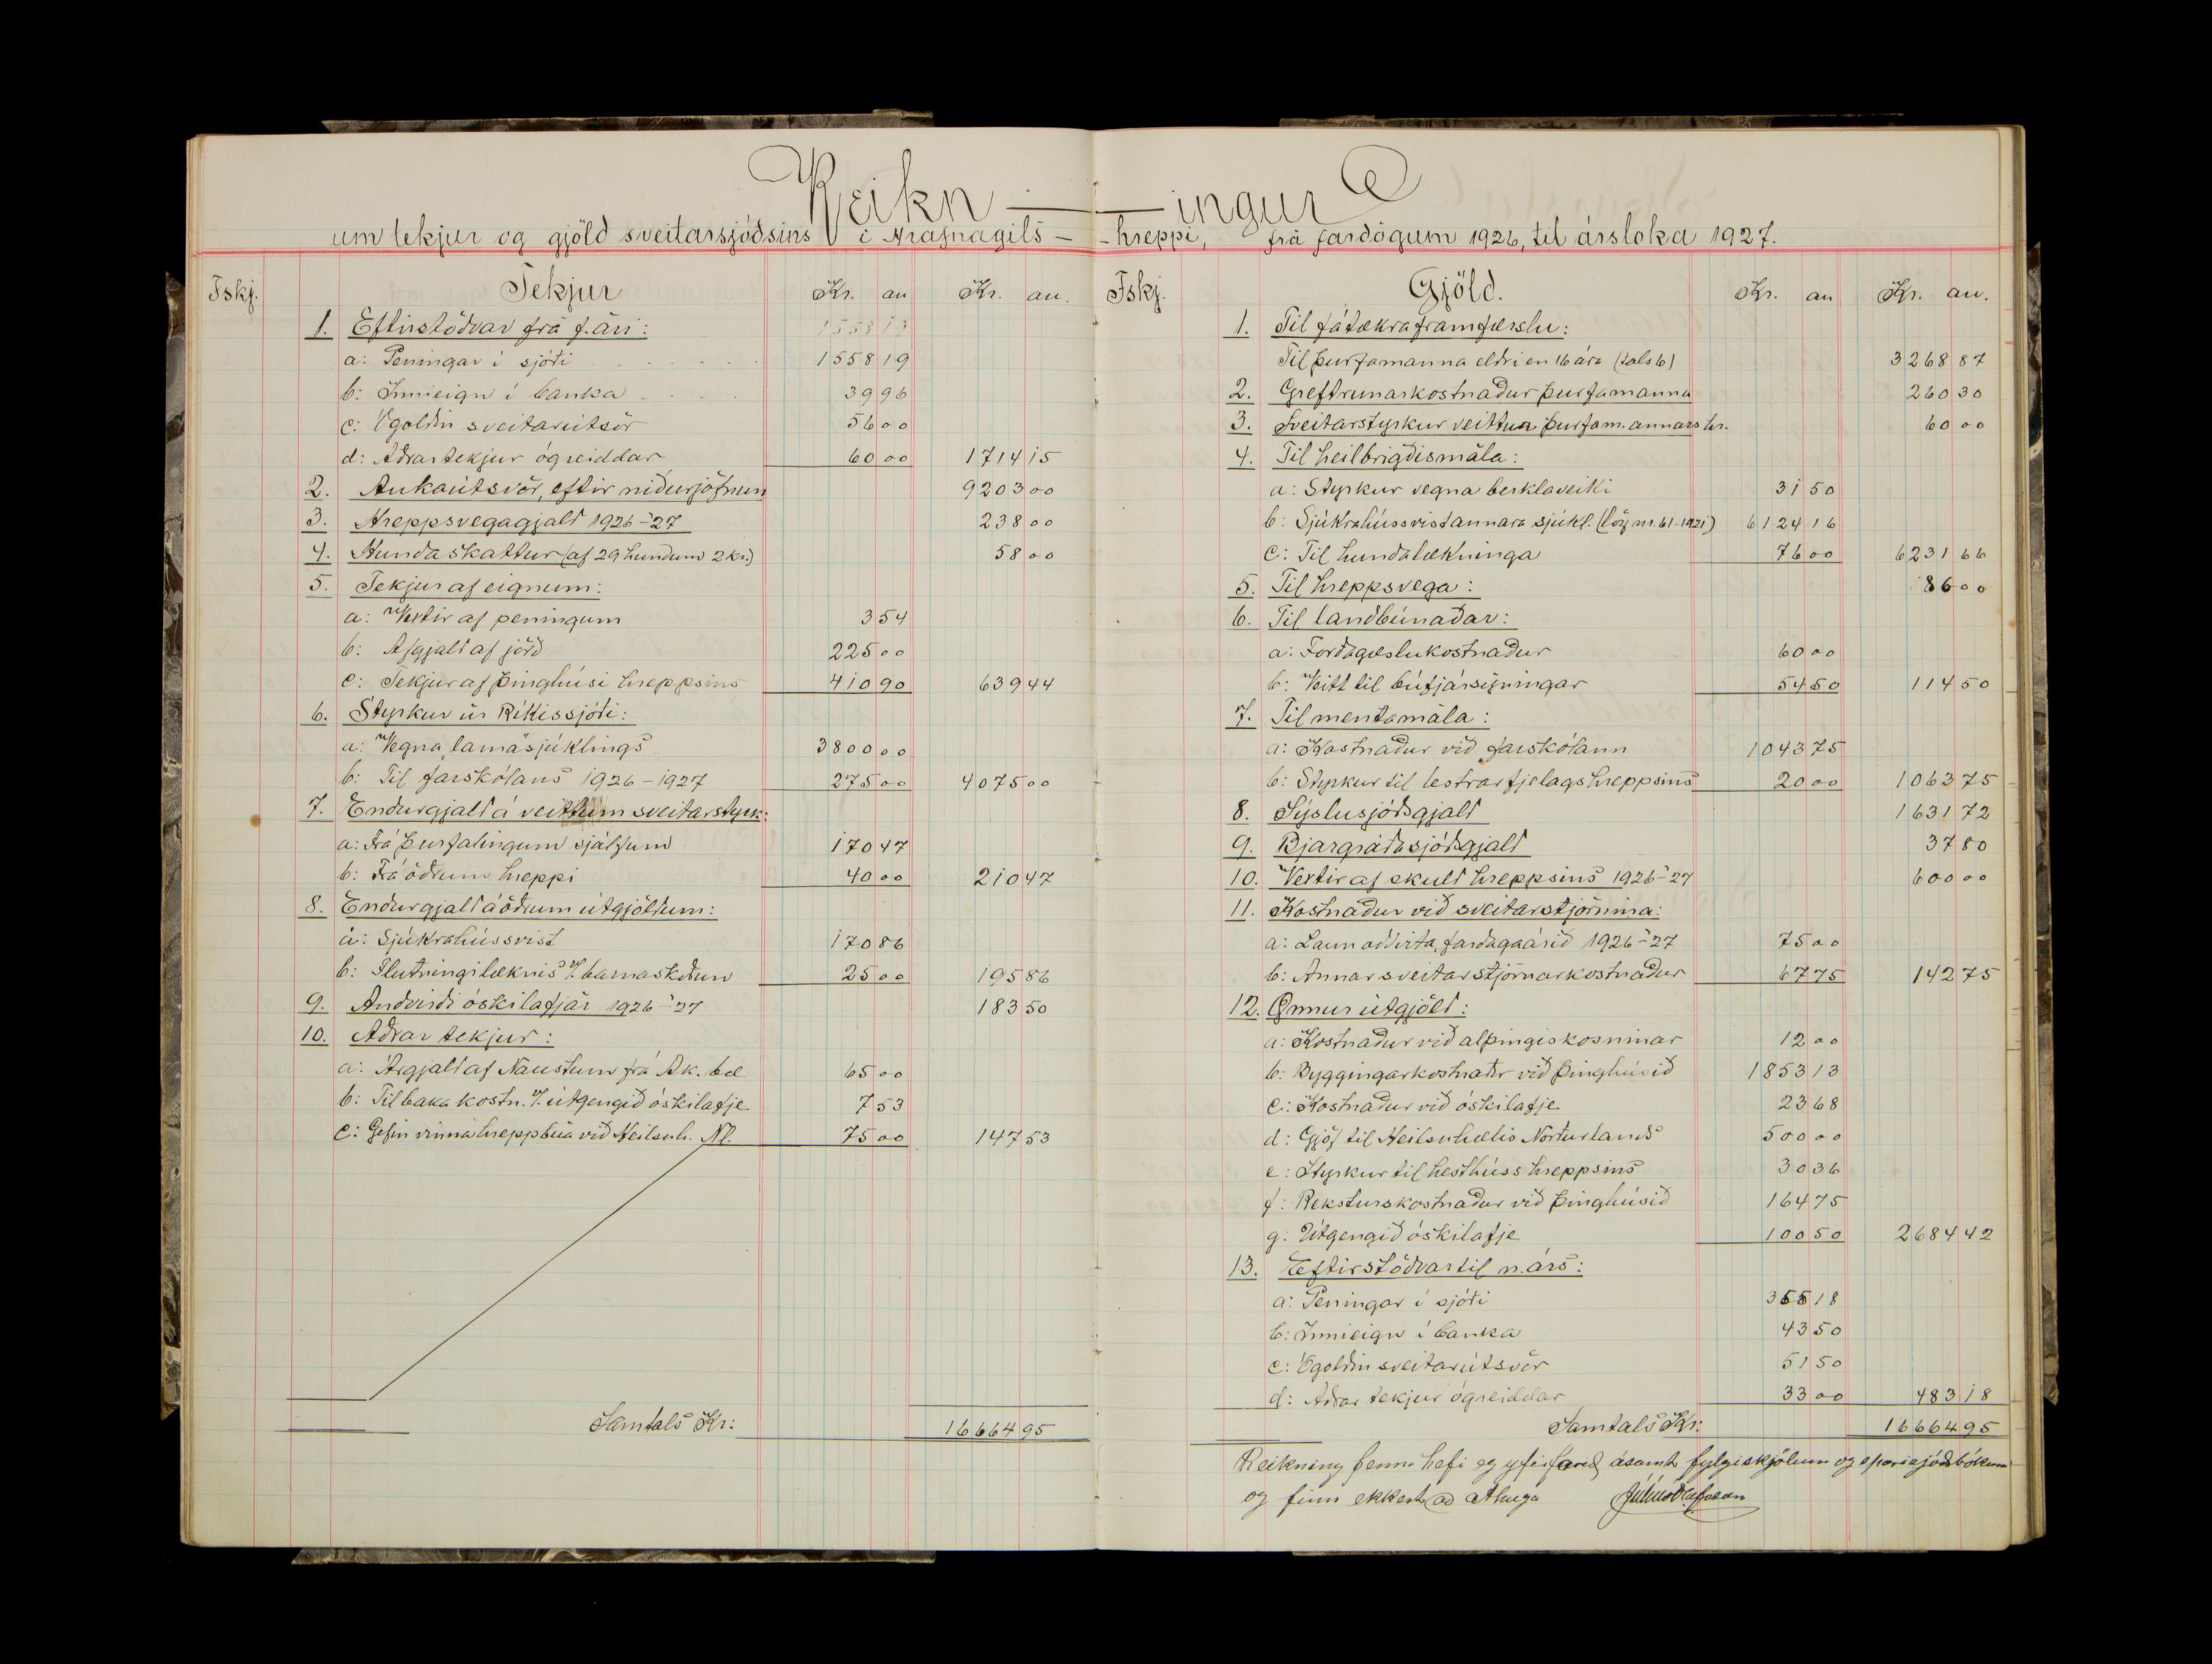 Reikn — — ingur
um tekjur og gjöld sveitarsjóðsins í Hrafnagils - - hreppi, frá fardögum 1926, til ársloka 1927.
Fskj. Tekjur Kr. au Kr. au.
1. Eftirstöðvar frá f. ári: 1558 19
a: Peningar í sjóði 1558 19
b: Innieign í banka 39 96
c: Ógoldin sveitarútsvör 56 00
d: Aðrar tekjur ógreiddar 60 00 1714 15
2. Aukaútsvör, eftir niðurjöfnun 9203 00
3. Hreppsvegagjald 1926-'27 238 00
4. Hundaskattur (af 29 hundum 2 kr.) 58 00
5. Tekjur af eignum:
a: Vextir af peningum 3 54
b: Afgjald af jörð 225 00
c: Tekjur af þinghúsi hreppsins 410 90 639 44
6. Styrkur úr Ríkissjóði:
a: Vegna lamasjúklings 3800 00
b: Til farskólans 1926-1927 275 00 4075 00
7. Endurgjald á veittum sveitarstyrk:
a: Frá þurfalingum sjálfum 170 47
b: Frá öðrum hreppi 40 00 210 47
8. Endurgjald á öðrum útgjöldum:
a: Sjúkrahússvist 170 86
b: Flutningi læknis v/. barnaskoðun 25 00 195 86
9. Andvirði óskilafjár 1926-'27 183 50
10. Aðrar tekjur:
a: Árgjald af Naustum frá Ak. bæ 65 00
b: Tilbaka kostn. v/. útgengið óskilafje 7 53
c: Gefin vinna hreppbúa við Heilsuh. Nl. 75 00 147 53
Samtals Kr: 16664 95
Fskj. Gjöld. Kr. au Kr. au.
1. Til fátækraframfærslu:
Til þurfamanna eldri en 16 ára (tals 6) 3268 87
2. Greftrunarkostnaður þurfamanna 260 30
3. Sveitarstyrkur veittur þurfam. annars hr. 60 00
4. Til heilbrigðismála:
a: Styrkur vegna berklaveiki 31 50
b: Sjúkrahússvist annara sjúkl. (lög nr. 61-1921) 6124 16
c: Til hundalækninga 76 00 6231 66
5. Til hreppsvega: 86 00
6. Til landbúnaðar:
a: Forðagæslukostnaður 60 00
b: Veitt til búfjársýningar 54 50 114 50
7. Til mentamála:
a: Kostnaður við farskólann 1043 75
b: Styrkur til lestrarfjelags hreppsins 20 00 1063 75
8. Sýslusjóðsgjald 1631 72
9. Bjargráðasjóðsgjald 37 80
10. Vextir af skuld hreppsins 1926-'27 600 00
11. Kostnaður við sveitarstjórnina:
a: Laun oddvita, fardagaárið 1926-'27 75 00
b: Annar sveitarstjórnarkostnaður 67 75 142 75
12. Önnur útgjöld:
a: Kostnaður við alþingiskosninar 12 00
b: Byggingarkostnaðr við þinghúsið 1853 13
c: Kostnaður við óskilafje 23 68
d: Gjöf til Heilsuhælis Norðurlands 500 00
e: Styrkur til hesthúss hreppsins 30 36
f: Reksturskostnaður við þinghúsið 164 75
g: Útgengið óskilafje 100 50 2684 42
13. Eftirstöðvar til n. árs:
a: Peningar í sjóði 355 18
b: Innieign í banka 43 50
c: Ógoldin sveitarútsvör 51 50
d: Aðrar tekjur ógreiddar 33 00 483 18
Samtals Kr: 16664 95
Reikning þenna hefi eg yfirfarið ásamt fylgiskjölum og sparisjóðsbókum
og finn ekkert að athuga Júlíus Ólafsson